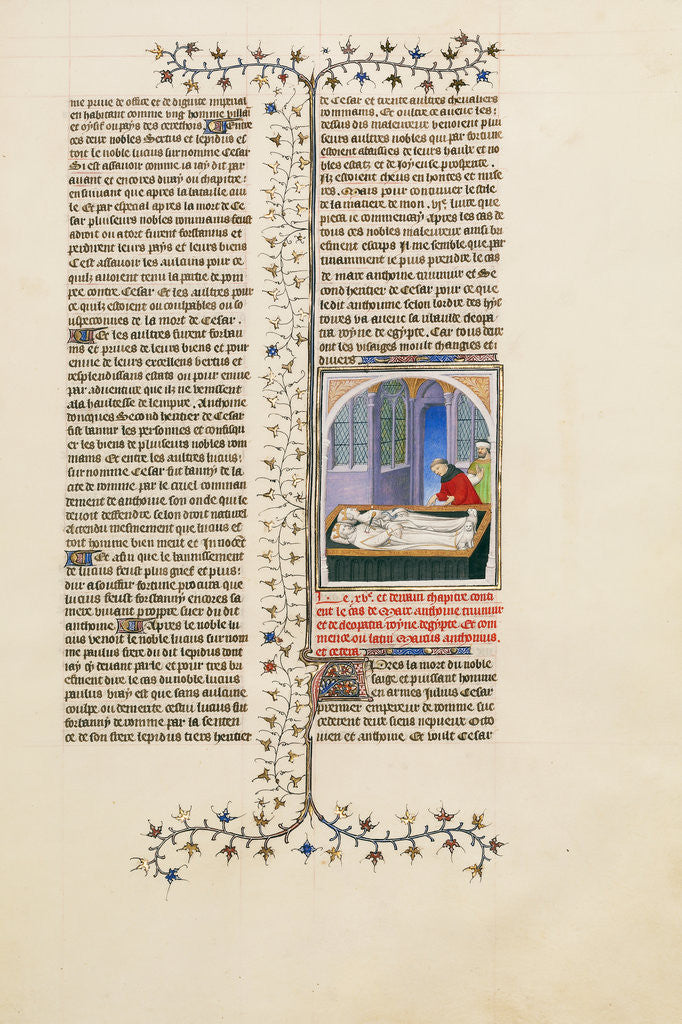 me priue de office et de dignite imperial
en habitant comme vng homme villai
et oysif ou pays des cerethois. Entre
ces deux nobles Sextus et lepidus es
toit le noble lucius surnomme Cesar
Si est assauoir comme ia iay dit par
auant et encores diray ou chapitre
ensuiuant que apres la bataille ciui
le Et par especial apres la mort de Ce
sar pluiseurs nobles rommains feust
a droit ou a tort furent forbannis et
perdirent leurs pays et leurs biens
Cest assauoir les aulcuns pour ce
quilz auoient tenu la partie de pom
pee contre Cesar Et les aultres pour
ce quilz estoient ou coulpables ou so
uspeconnes de la mort de Cesar.
Et les aultres furent forban
nis et priues de leurs biens et pour
enuie de leurs excellens vertus et
resplendissans estats ou pour enuie
par aduenture que ilz ne venissent
a la haultesse de lempire. Anthoine
doncques Second heritier de Cesar
fist bannir les personnes et confisqu
er les biens de pluiseurs nobles rom
mains Et entre les aultres lucius
surnomme Cesar fut banny de la
cite de romme par le cruel comman
dement de anthoine son oncle qui le
deuoit deffendre selon droit naturel
Actendu mesmement que lucius es
toit homme bien meur et Innocent
Et afin que le bannissement
de lucius feust plus grief et plus
dur a souffrir fortune procura que
lucius feust forbanny encores sa
mere viuant propre suer du dit
anthoine. Apres le noble lu
cius venoit le noble lucius surnom
me paulus frere du dit lepidus dont
iay cy deuant parle et pour tres bri
efment dire le cas du noble lucius
paulus vray est que sans aulcune
coulpe ou demerite cestui lucius fut
forbanny de romme par la senten
ce de son frere lepidus tiers heritier
de Cesar et trente aultres cheualiers
rommains. Et oultre ce auecc les
dessus dis maleureux venoient plui
seurs aultres nobles qui par fortune
estoient abaissies de leurs haulx et no
bles estatz et de Joyeuse prosperite.
Ilz estoient cheus en hontes et mise
res. Mais pour continuer le stile
de la matiere de mon .vje. liure que
pieca ie commencay Apres les cas de
tous ces nobles maleureux ainsi bri
efment escrips Il me semble que par
tinamment ie puis prendre le cas
de marc anthoine triumuir et Se
cond heritier de Cesar pour ce que
le dit anthoine selon lordre des hys
toires va auecc sa ribaulde cleopa
tra royne de egypte. Car tous deux
ont les visaiges moult changies et
diuers
Le .xve. et derrain chapitre conti
ent le cas de Marc anthoine triumuir
et de cleopatra royne degypte. Et com
mence ou latin Marcus anthonius.
et cetera.
Apres la mort du noble
saige et puissant homme
en armes Julius Cesar
premier empereur de romme suc
cederent deux siens nepueux Octo
uien et anthoine Et voult Cesar